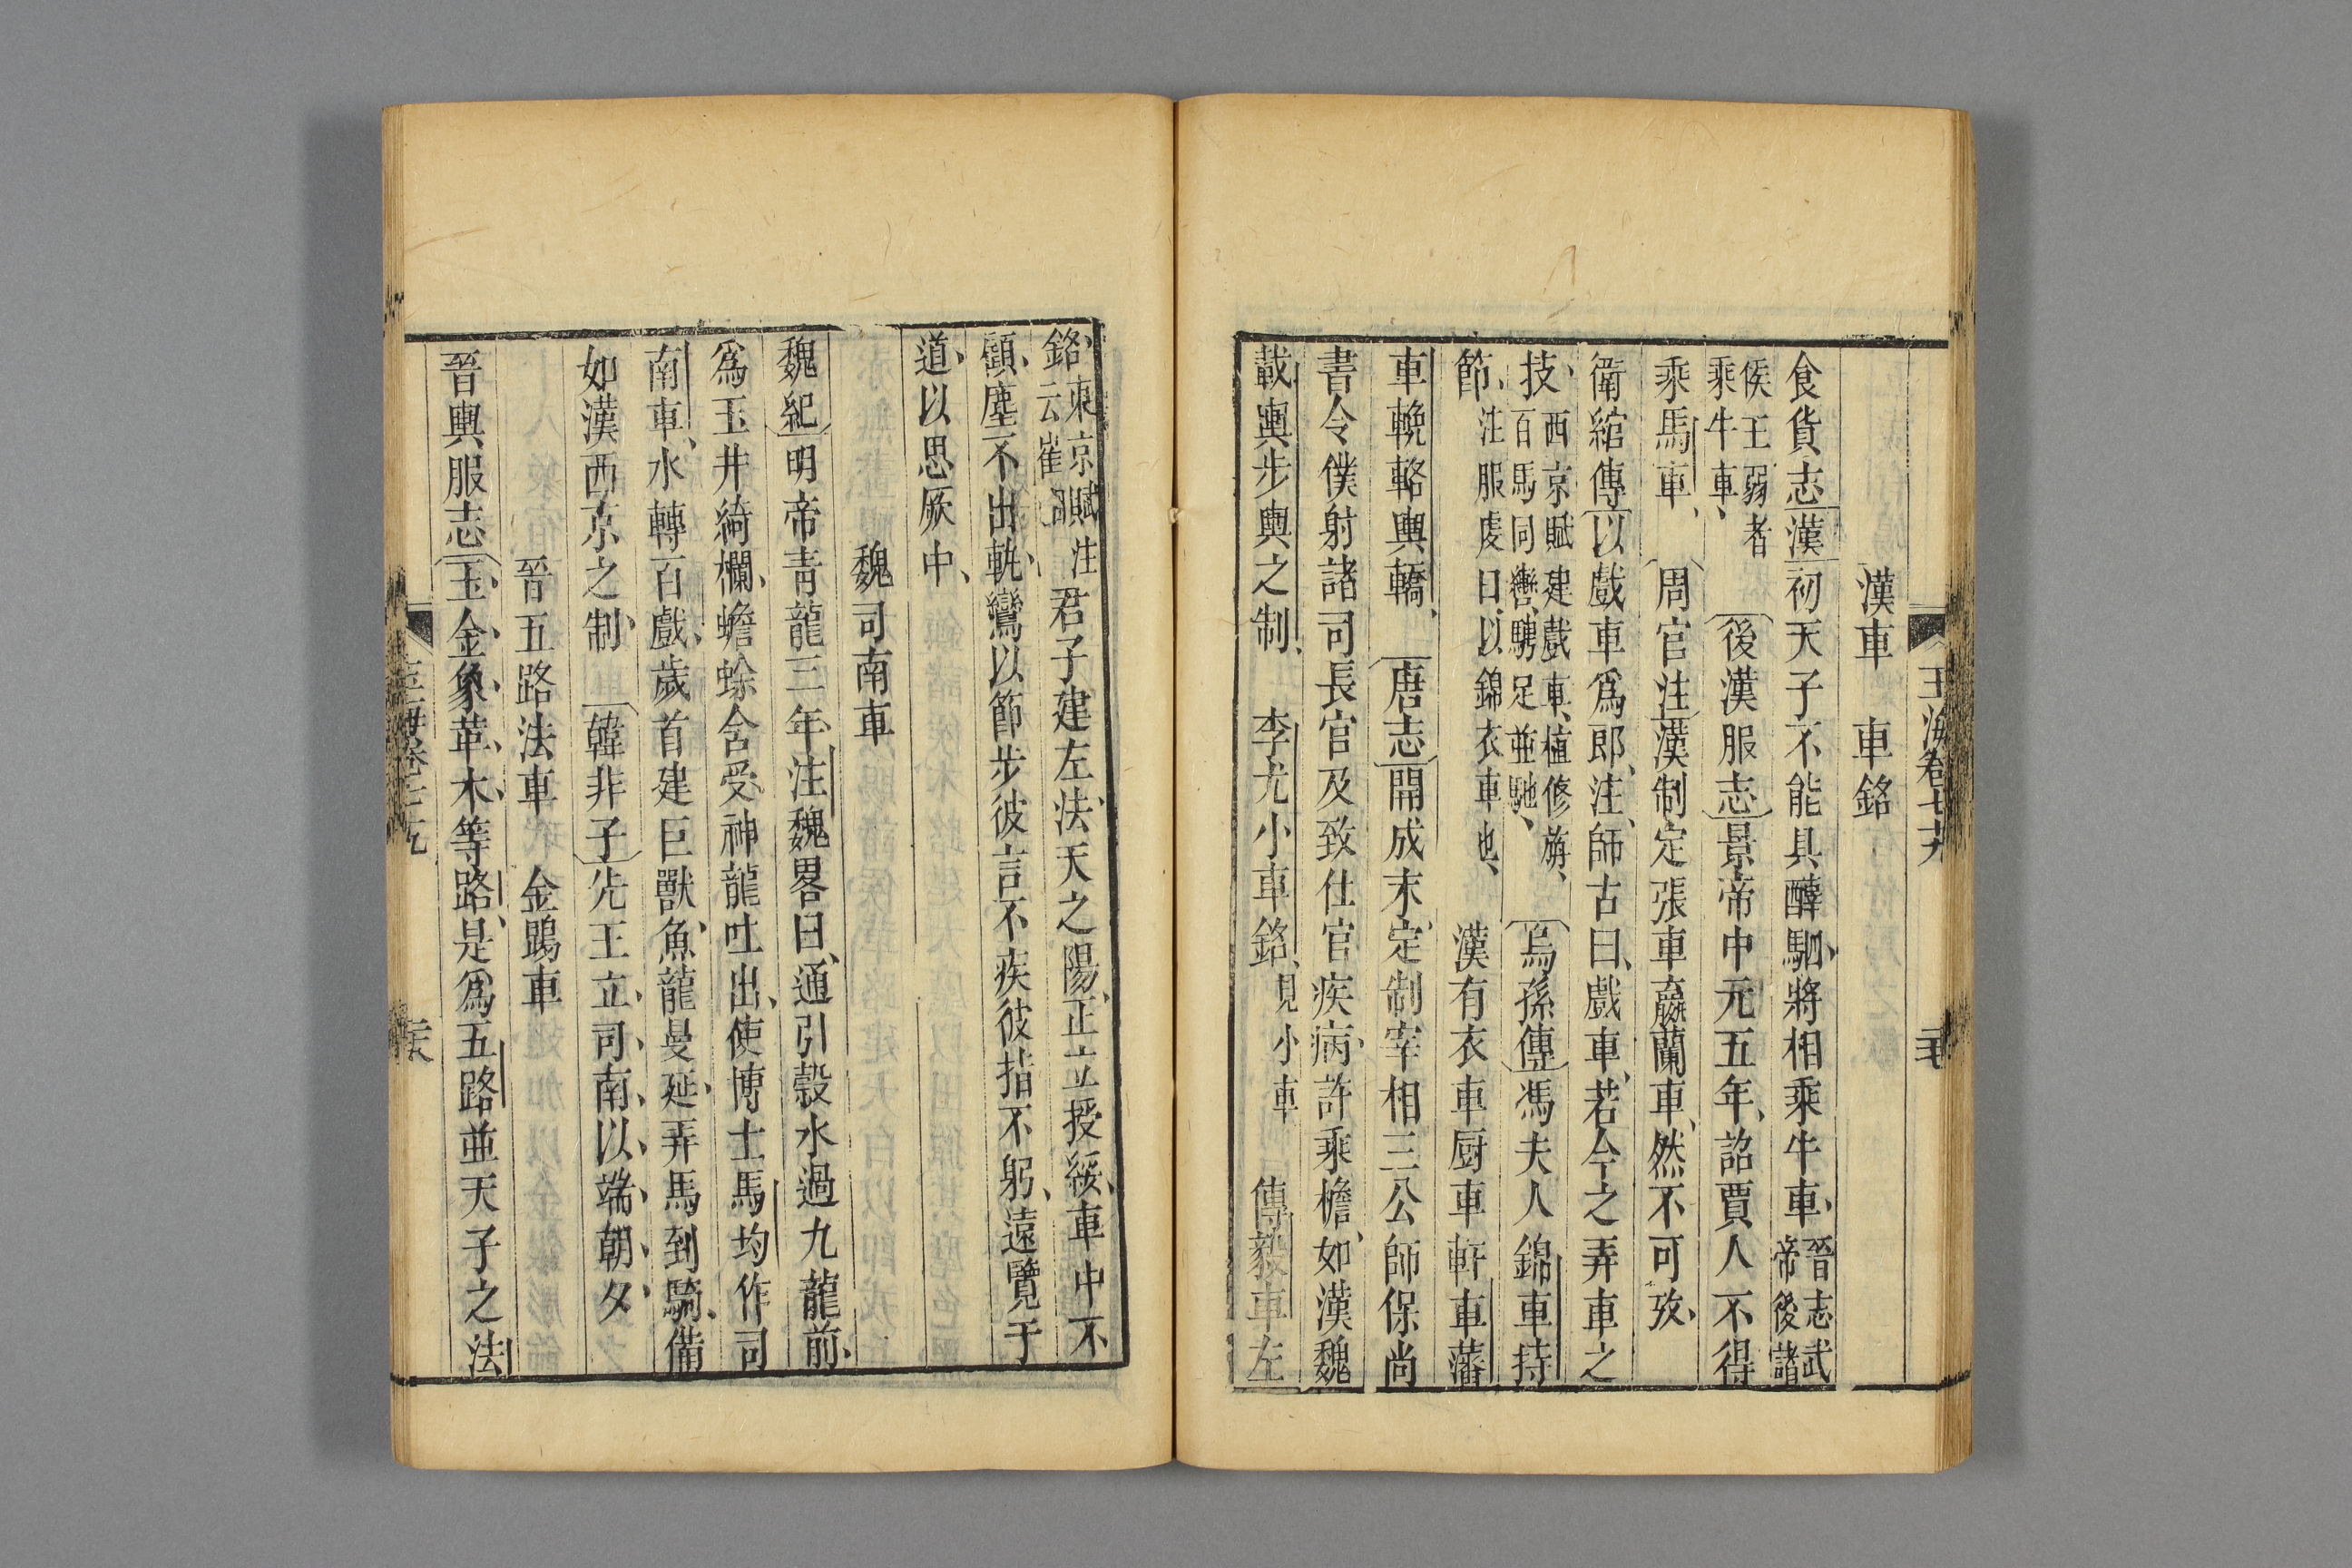 玉海卷七十
漢車　車銘
食貨志漢初天子不能具醇駟將相乘牛車晉志武帝後諸
侯王弱者乘牛車後漢服志景帝中元五年詔賈人不得
乘馬車周官注漢制定張車羸蘭車然不可攷
衛綰傳以戲車爲郎注師古曰戲車若今之弄車之
技西京賦建戲車植修旃百馬同轡騁足並馳烏孫傳馮夫人錦車持
節注服虔曰以錦衣車也漢有衣車厨車軒車藩
車輓輅輿轎唐志開成末定制宰相三公師保尚
書令僕射諸司長官及致仕官疾病許乘檐如漢魏
載輿步輿之制李尤小車銘見小車傳毅車左
銘東京賦注云崔駰君子建左法天之陽正立授綏車中不
顧塵不出軌鸞以節步彼言不疾彼指不躬遠覽于
道以思厥中
魏司南車
魏紀明帝靑龍三年注魏畧曰通引穀水過九龍前
爲玉井綺欄蟾蜍含受神龍吐出使博士馬均作司
南車水轉百戲歲首建巨獸魚龍曼延弄馬到騎備
如漢西京之制韓非子先王立司南以端朝夕
晉五路法車　金鵄車
晉輿服志玉金象革木等路是爲五路並天子之法